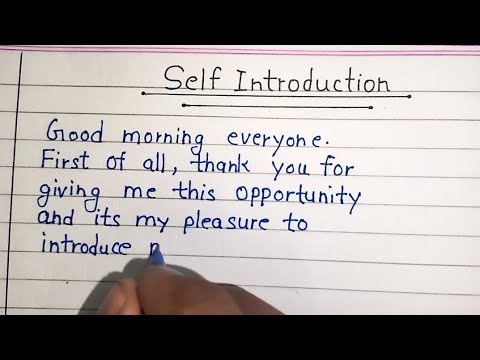 Self Introduction
Good morning everyone.
First of all, thank you for
giving me this opportunity
and its my pleasure to
introduce